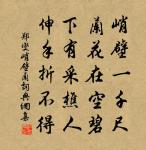 峭壁一千尺
蘭花在空碧
下有采樵人
伸手折不得
鄭燮峭壁蘭詞典網集